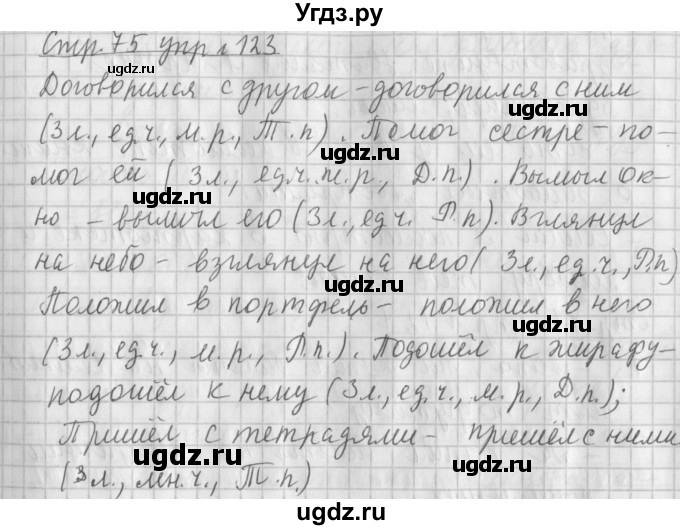 Угдз.ру
Стр. 75 упр. 123
Договорился с другом – договорился с ним
(3 л., ед.ч., м.р., Т.п). Помог сестре – по-
мог ей (3 л., ед.ч. ж.р., Д.п.). Вымыл ок-
но – вымыл его (3 л., ед.ч. Р.п). Взглянул
на небо – взглянул на него (3 л., ед.ч., Р.п)
Положил в портфель – положил в него
(3 л., ед.ч., м.р., Р.п.). Подошёл к жирафу –
подошёл к нему (3 л., ед.ч., м.р., Д.п.);
Пришёл с тетрадями – пришёл с ними
(3 л., мн.ч., Т.п.)
ugdz.ru
ugdz.ru
ugdz.ru
ugdz.ru
ugdz.ru
ugdz.ru
ugdz.ru
ugdz.ru
ugdz.ru
ugdz.ru
ugdz.ru
ugdz.ru
Угдз.ру